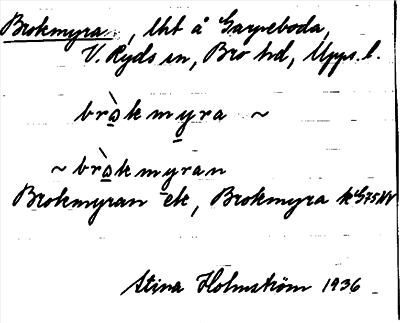 Brokmyran, lht å Garpeboda,
V. Ryds sn, Bro hd, Upps. l.
bròkmyra ~
~ bròkmyran
Brokmyran ek, Brokmyra k G75NV
Stina Holmström 1936